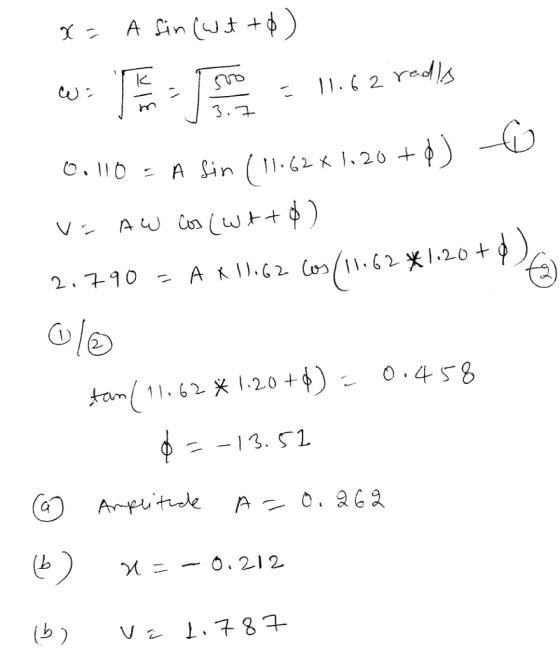 x = A Sin(ωt + φ)
ω = √(k/m) = √(500/3.7) = 11.62 rad/s
0.110 = A Sin(11.62 × 1.20 + φ) — ①
V = Aω Cos(ωt + φ)
2.790 = A × 11.62 Cos(11.62 * 1.20 + φ) — ②
①/②
tan(11.62 * 1.20 + φ) = 0.458
φ = -13.51
ⓐ Amplitude A = 0.262
(b) x = - 0.212
(b) V = 1.787